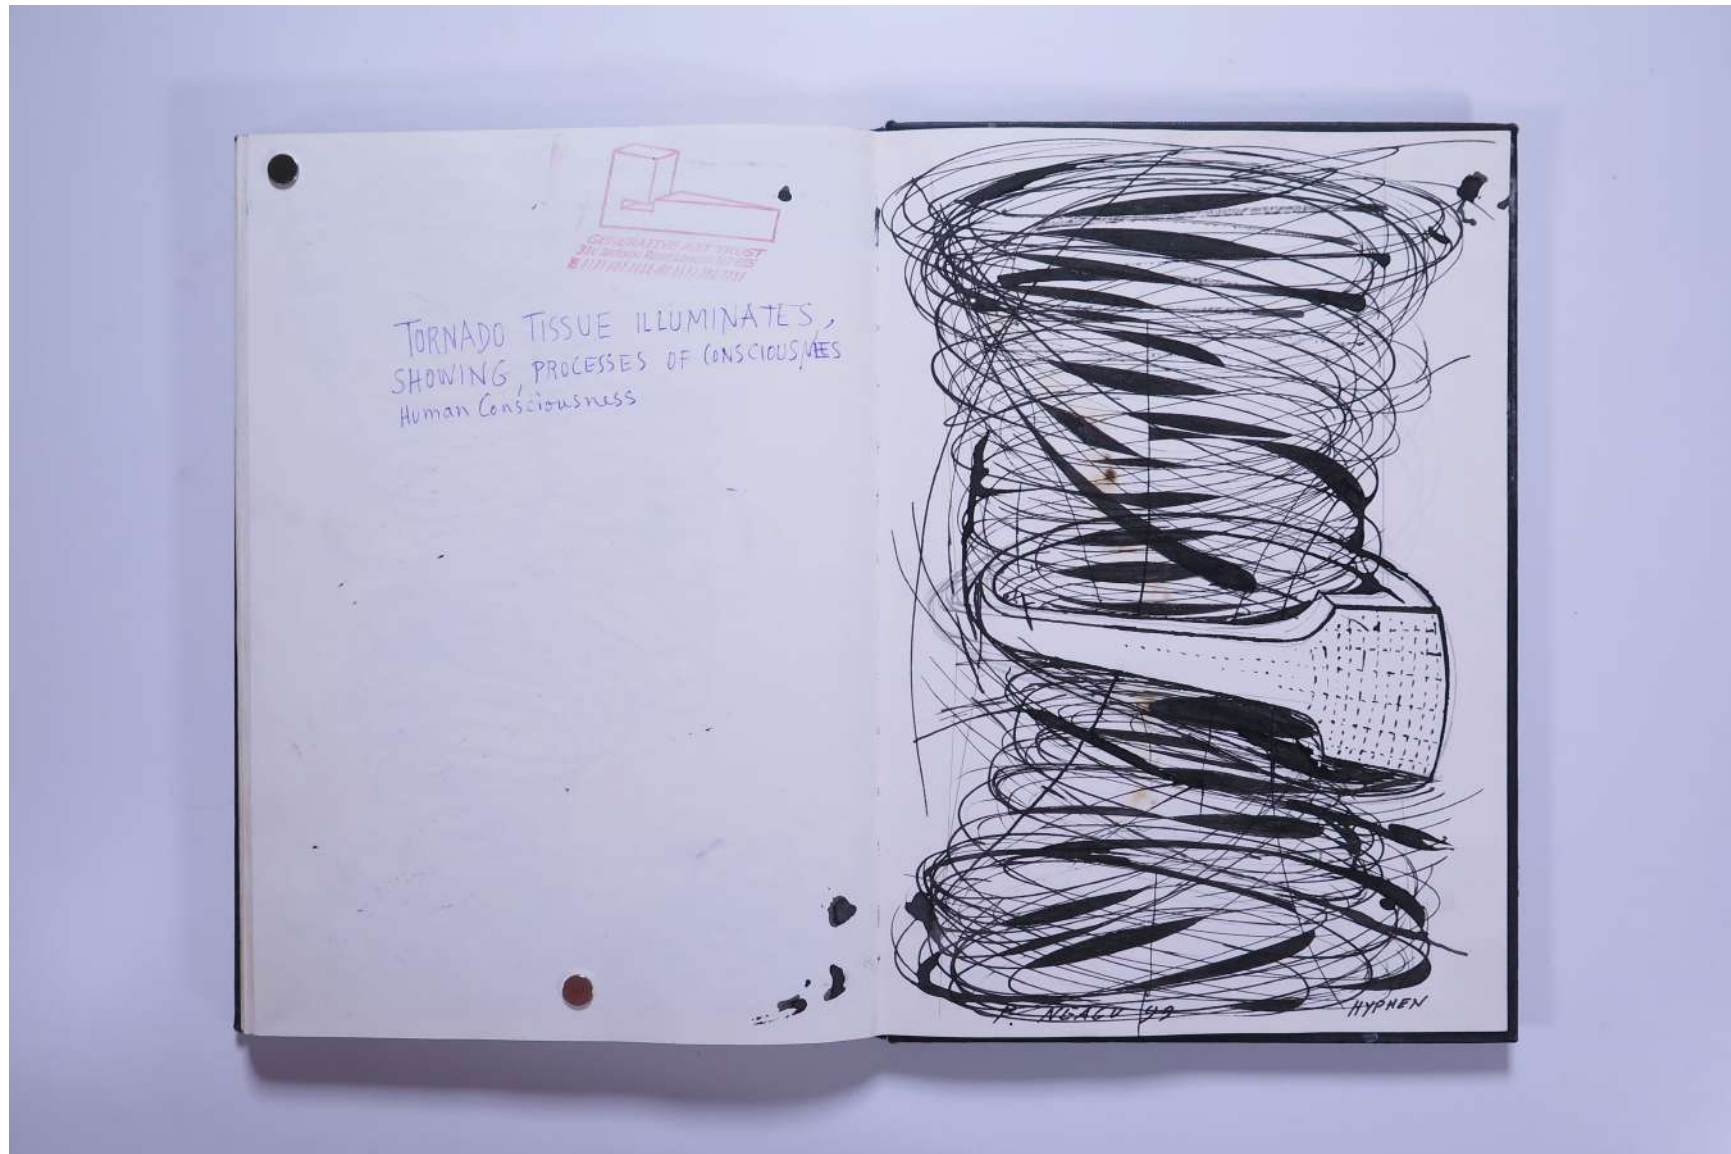 GENERATIVE ART TRUST
TORNADO TISSUE ILLUMINATES,
SHOWING, PROCESSES OF CONSCIOUSNES
Human Consciousness
P. NGAGU 99
HYPHEN